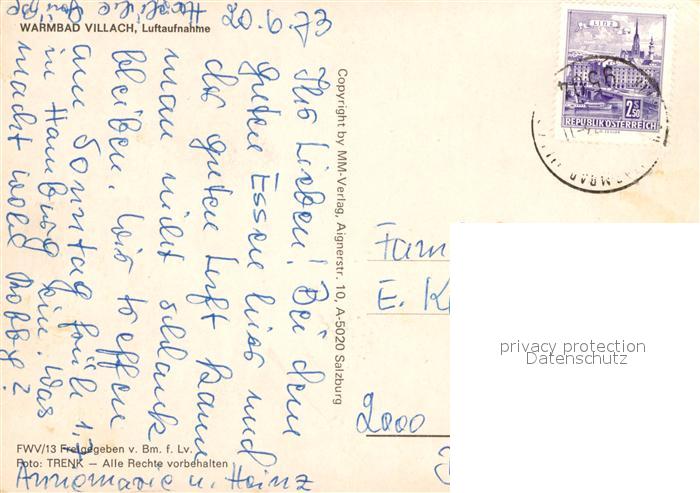 WARMBAD VILLACH, Luftaufnahme
20.6.73
Ihr Lieben! Bei dem
guten Essen hier und
der guten Luft kann
man nicht schlank
bleiben. Wir treffen
am Sonntag früh 1.7.
in Hamburg ein. Was
macht wohl Mobby?
Herzliche Grüße
Annemarie u. Heinz
FWV/13 Freigegeben v. Bm. f. Lv.
Foto: TRENK — Alle Rechte vorbehalten
Copyright by MM-Verlag, Aignerstr. 10, A-5020 Salzburg
LINZ
2S50
REPUBLIK ÖSTERREICH
Fam
E. K
2000
privacy protection
Datenschutz